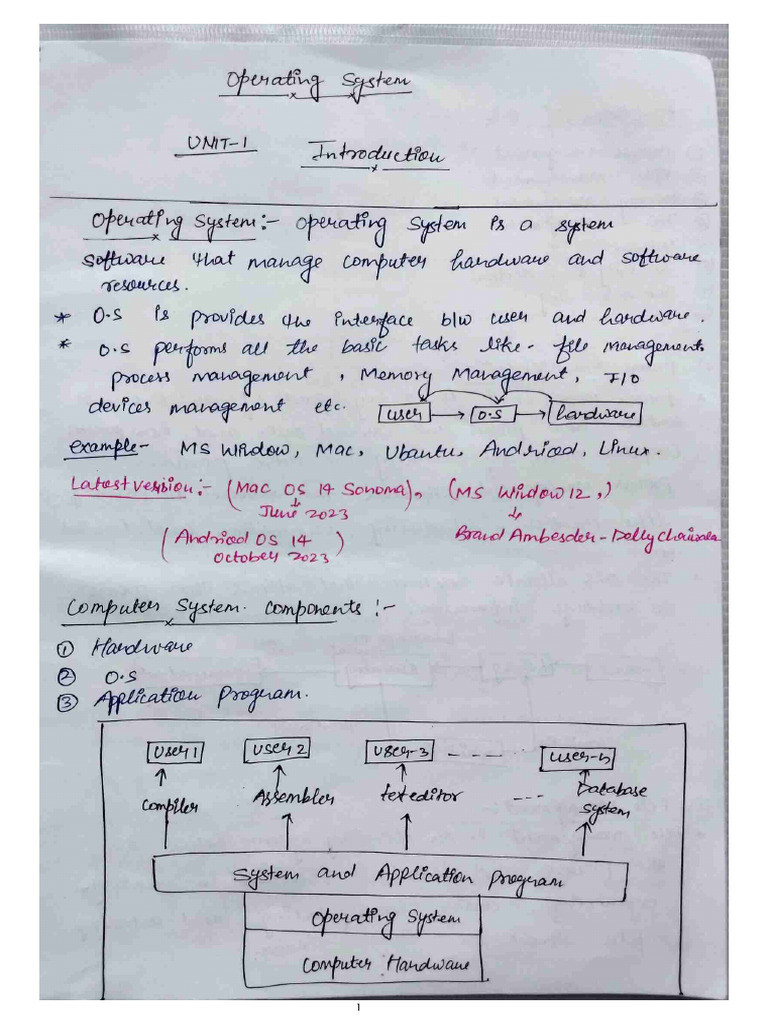 Operating System
UNIT-1 Introduction
Operating System:- Operating System is a system
software that manage computer hardware and software
resources.
* O.S is provides the interface b/w user and hardware.
* O.S performs all the basic tasks like - file management
process management, Memory Management, I/O
devices management etc. user O.S hardware
Example- MS Window, Mac, Ubantu, Andriod, Linux.
Latest version:- (Mac OS 14 Sonoma), (MS Window 12,)
June 2023
Brand Ambesder - Dolly Chaiwala
(Andriod OS 14
October 2023)
Computer System components:-
① Hardware
② O.S
③ Application Program.
User 1 User 2 User-3 ---- User-n
Compiler Assembler texteditor --- Database
system
System and Application Program
Operating System
Computer Hardware
1